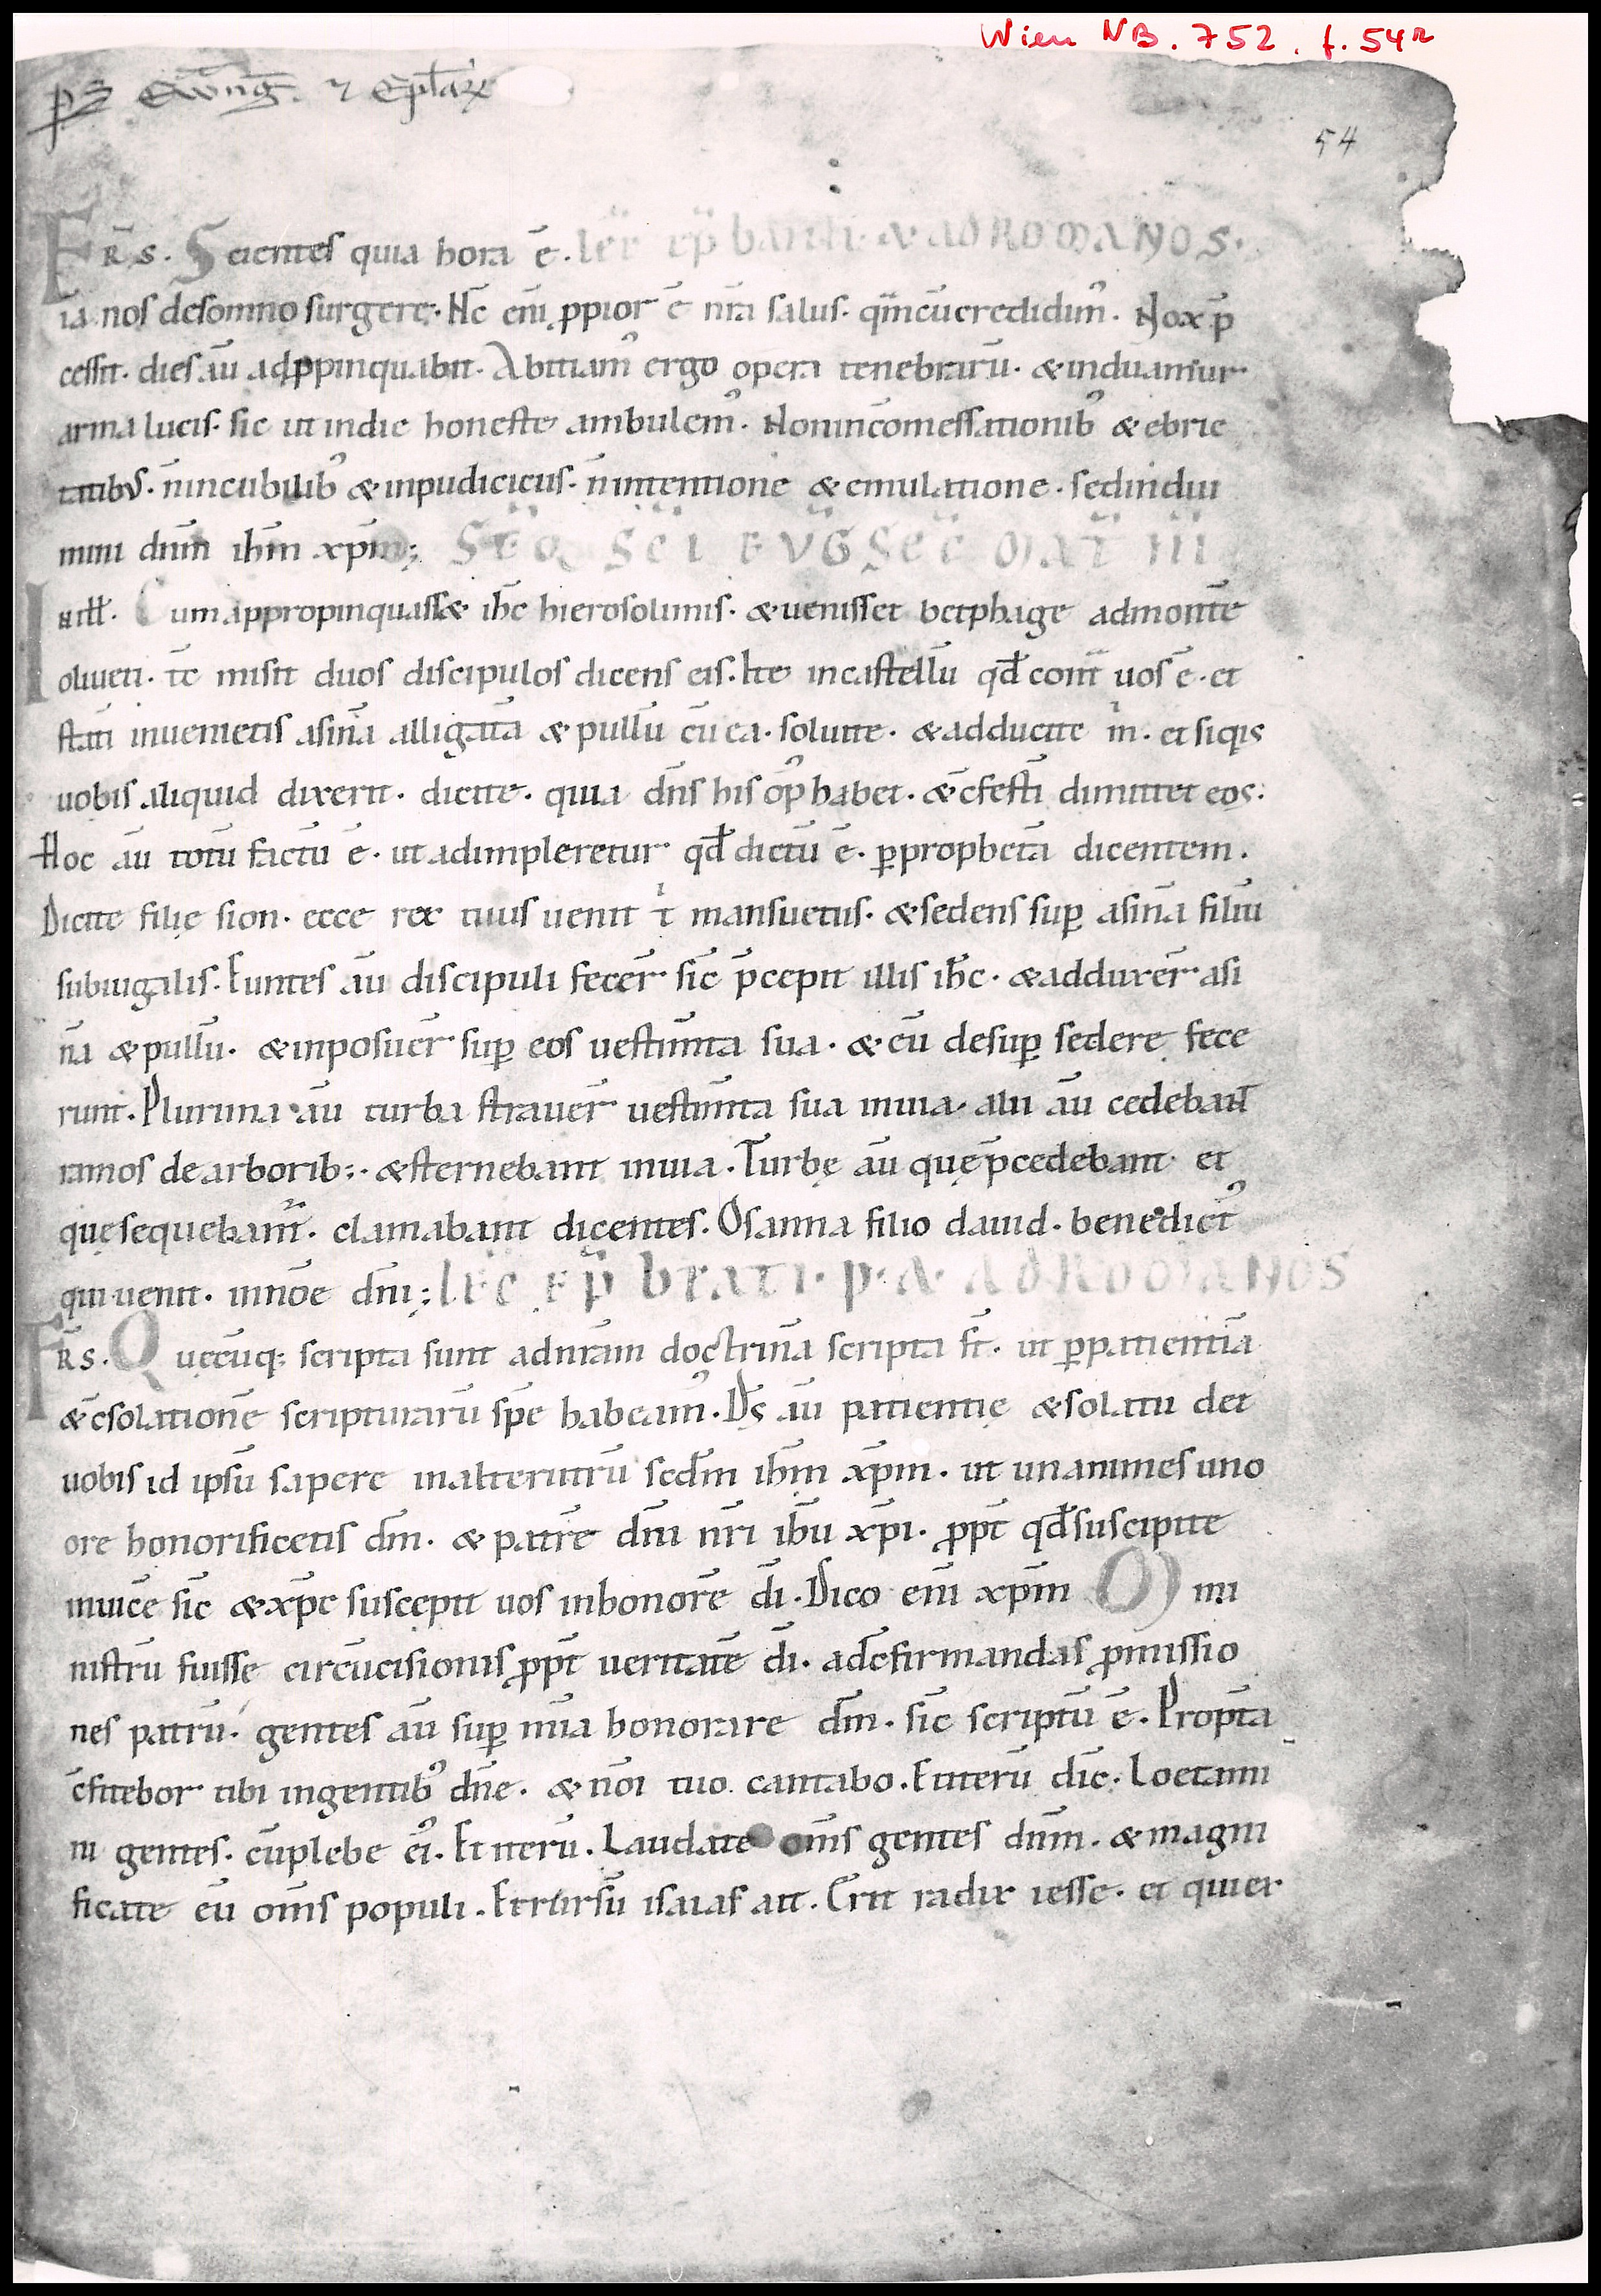 Wien NB. 752. f. 54r
ps Ewng. ⁊ Eplarꝫ
54
FR̄S. Scientes quia hora ē. lec̄ ep̄ beati. & AD ROMANOS.
iā nos desomno surgere. Nc̄ eni ꝓpior ē nr̄a salus. qm̄cūcredidim᾿. Nox p̄
cessit. dies aū adꝓpinquabit. Abitiam᾿ ergo opera tenebrarū. & induamur
arma lucis. sic ut indie honeste ambulem᾿. Nonincōmessationib᾿ & ebrie
tatib᾿. n̄incubilib᾿ & inpudicicus. n̄intentione & emulatione. sedindui
mini dnm̄ ihm̄ xpm̄; SEQ SCI EVG SEC MAT III
IN ill̄. Cum appropinquass& ihc̄ hierosolimis. & uenisset betphage admontē
oliueti. tc̄ misit duos discipulos dicens eis. Ite incastellū qd̄ cont̄ uos ē. et
statī inuenietis asinā alligatā & pullū cū ea. soluite. & adducite m̄. et siqis
uobis aliquid dixerit. dicite. quia dn̄s his op᾿ habet. & c̄festī dimittet eos.
Hoc aū totū factū ē. ut adimpleretur qd̄ dictū ē. ꝑprophetā dicentem.
Dicite filię sion. ecce rex tuus uenit t mansuetus. & sedens suꝑ asinā filiū
subiugalis. Euntes aū discipuli fecer̄ sic̄ p̄cepit illis ihc̄. & adduxer̄ asi
nā & pullū. & inposuer̄ suꝑ eos uestim̄ta sua. & eū desuꝑ sedere fece
runt. Plurima aū turba strauer̄ uestim̄ta sua inuia. alii aū cedebant̄
ramos de arborib;. & sternebant inuia. Turbę aū quęp̄cedebant et
quęsequebant̄. clamabant dicentes. Osanna filio dauid. benedict᾿
qui uenit. innōe dni; LEC EP BEATI. P. A. AD ROMANOS
FR̄S. Quęcūq; scripta sunt adnr̄am doctrinā scripta st̄. ut ꝑpatientiā
& c̄solationē scripturarū spē habeam᾿. Ds̄ aū patientię & solatii det
uobis id ipsū sapere inalterutrū scdm̄ ihm̄ xpm̄. ut unanimes uno
ore honorificetis dm̄. & patrē dni nr̄i ihū xpi. ꝓpt̄ qd̄suscipite
inuicē sic̄ & xpc̄ suscepit uos inhonorē dī. Dico enī xpm̄ mi
nistrū fuisse circūcisionis ꝓpt̄ ueritatē dī. adc̄firmandas ꝓmissio
nes patrū. gentes aū suꝑ mīa honorare dm̄. sic̄ scriptū ē. Propt̄a
c̄fitebor tibi ingentib᾿ dn̄e. & nōi tuo cantabo. Etiterū dic̄. Loetami
ni gentes. cūplebe ei᾿. Et iterū. Laudate om̄s gentes dnm̄. & magni
ficate eū om̄s populi. Etrursū isaias ait. Erit radix iesse. et quier